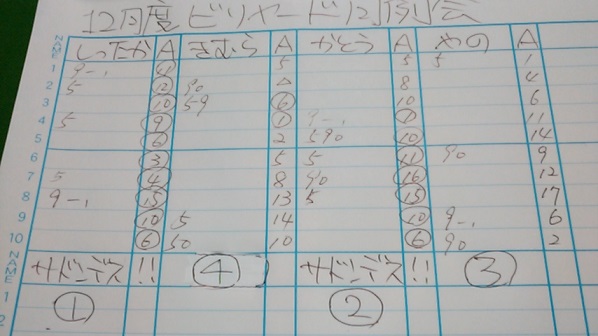 12月度ビリヤード月例会
NAME したか A きむら A かとう A やの A
1 9-1 4 5 5 5 1
2 5 12 90 8 4
3 10 59 6 10 6
4 5 9 1 9-1 11
5 6 2 590 10 14
6 3 5 5 11 90 9
7 5 4 8 90 16 12
8 9-1 15 13 5 15 17
9 10 5 14 10 9-1 6
10 6 50 10 6 90 2
NAME サドンデス!! ④ サドンデス!! ③
1 ① ②
2